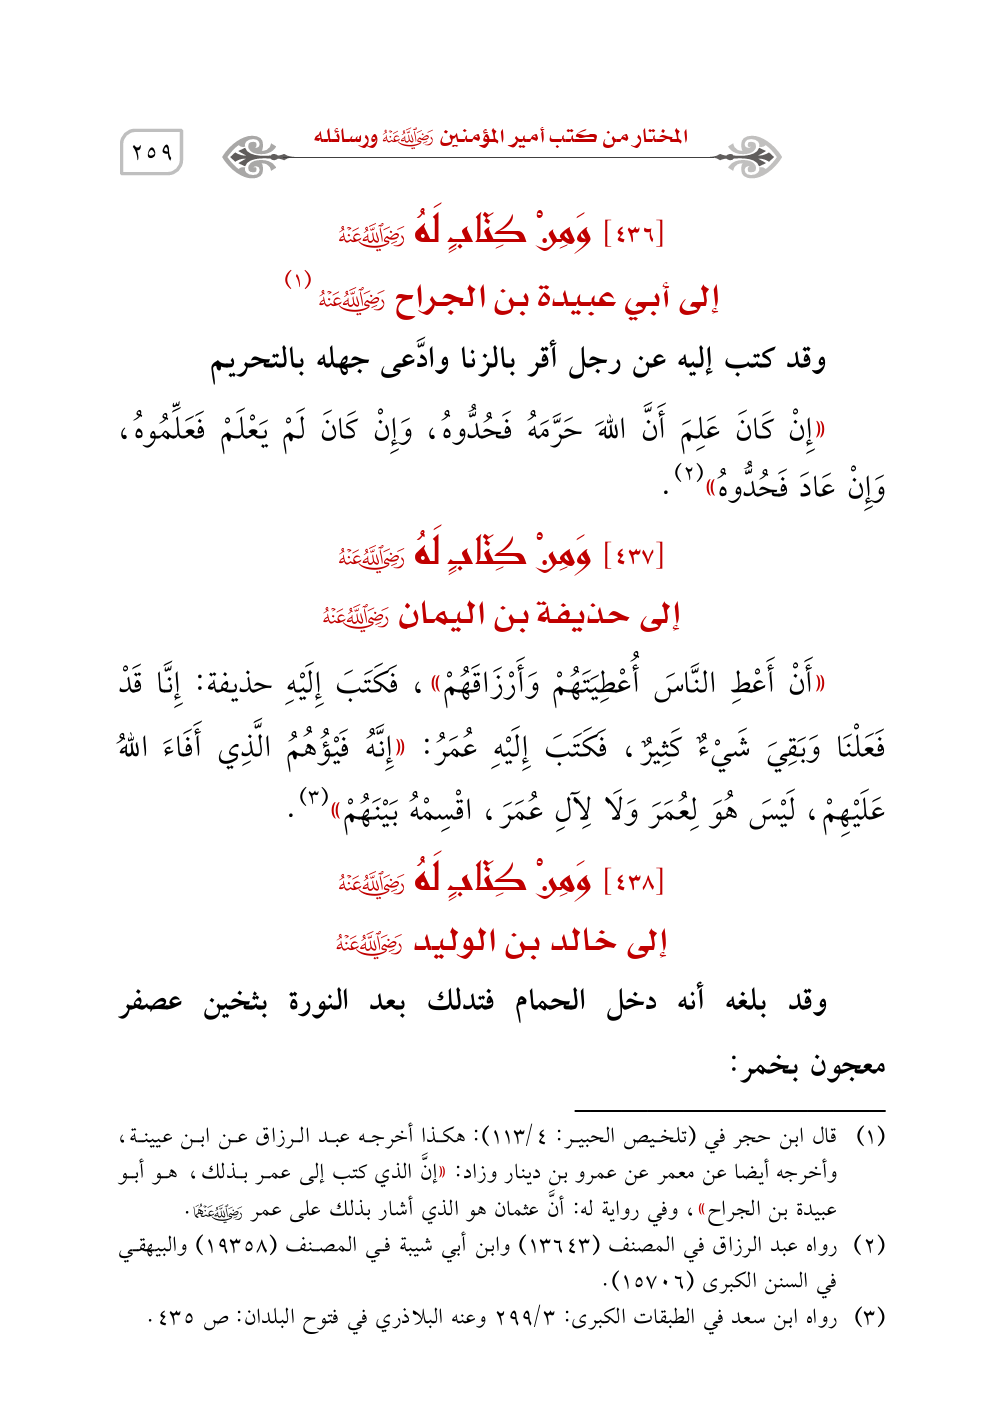 المختار من كتب أمير المؤمنين رضي الله عنه ورسائله
٢٥٩
[٤٣٦] وَمِنْ كِتَابٍ لَهُ رضي الله عنه
إلى أبي عبيدة بن الجراح رضي الله عنه (١)
وقد كتب إليه عن رجل أقر بالزنا وادَّعى جهله بالتحريم
«إِنْ كَانَ عَلِمَ أَنَّ اللهَ حَرَّمَهُ فَحُدُّوهُ، وَإِنْ كَانَ لَمْ يَعْلَمْ فَعَلِّمُوهُ،
وَإِنْ عَادَ فَحُدُّوهُ»(٢).
[٤٣٧] وَمِنْ كِتَابٍ لَهُ رضي الله عنه
إلى حذيفة بن اليمان رضي الله عنه
«أَنْ أَعْطِ النَّاسَ أُعْطِيَتَهُمْ وَأَرْزَاقَهُمْ»، فَكَتَبَ إِلَيْهِ حذيفة: إِنَّا قَدْ
فَعَلْنَا وَبَقِيَ شَيْءٌ كَثِيرٌ، فَكَتَبَ إِلَيْهِ عُمَرُ: «إِنَّهُ فَيْؤُهُمُ الَّذِي أَفَاءَ اللهُ
عَلَيْهِمْ، لَيْسَ هُوَ لِعُمَرَ وَلَا لِآلِ عُمَرَ، اقْسِمْهُ بَيْنَهُمْ»(٣).
[٤٣٨] وَمِنْ كِتَابٍ لَهُ رضي الله عنه
إلى خالد بن الوليد رضي الله عنه
وقد بلغه أنه دخل الحمام فتدلك بعد النورة بثخين عصفر
معجون بخمر:
(١) قال ابن حجر في (تلخيص الحبير: ١١٣/٤): هكذا أخرجه عبد الرزاق عن ابن عيينة،
وأخرجه أيضا عن معمر عن عمرو بن دينار وزاد: «إنَّ الذي كتب إلى عمر بذلك، هو أبو
عبيدة بن الجراح»، وفي رواية له: أنَّ عثمان هو الذي أشار بذلك على عمر رضي الله عنهما.
(٢) رواه عبد الرزاق في المصنف (١٣٦٤٣) وابن أبي شيبة في المصنف (١٩٣٥٨) والبيهقي
في السنن الكبرى (١٥٧٠٦).
(٣) رواه ابن سعد في الطبقات الكبرى: ٢٩٩/٣ وعنه البلاذري في فتوح البلدان: ص ٤٣٥.